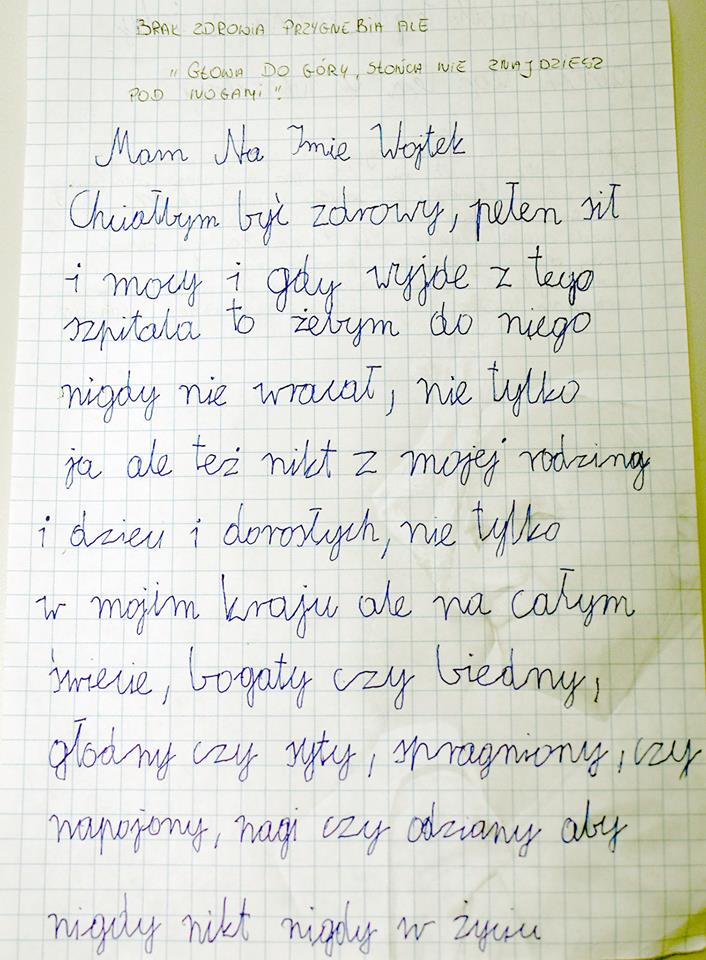 BRAK ZDROWIA PRZYGNEBIA ALE
"GŁOWA DO GÓRY, SŁOŃCA NIE ZNAJDZIESZ
POD NOGAMI"
Mam Na Imie Wojtek
Chciałbym być zdrowy, pełen sił
i mocy i gdy wyjde z tego
szpitala to żebym do niego
nigdy nie wracał, nie tylko
ja ale też nikt z mojej rodziny
i dzieci i dorosłych, nie tylko
w mojim kraju ale na całym
świecie, bogaty czy biedny,
głodny czy syty, spragniony, czy
napojony, nagi czy odziany aby
nigdy nikt nigdy w życiu